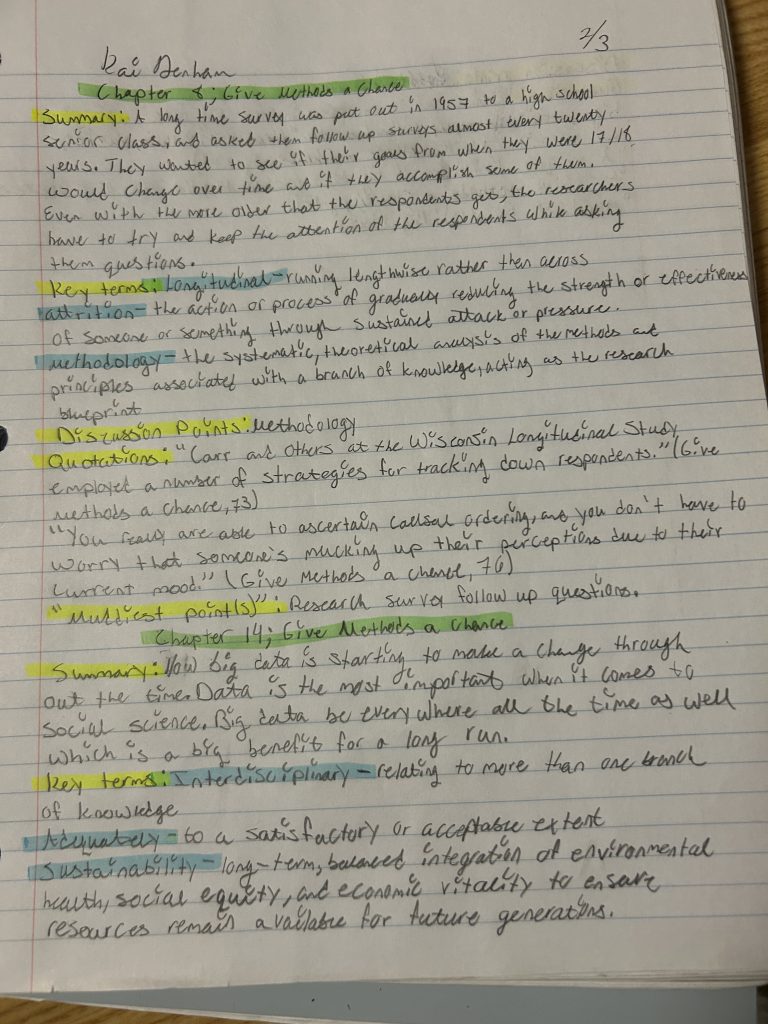 2/3
Kai Denham
Chapter 8; Give Methods a Chance
Summary: A long time survey was put out in 1957 to a high school
senior class, and asked them follow up surveys almost every twenty
years. They wanted to see if their goals from when they were 17/18
would change over time and if they accomplish some of them.
Even with the more older that the respondents get, the researchers
have to try and keep the attention of the respondents while asking
them questions.
Key terms: Longitudinal - running lengthwise rather then across
attrition - the action or process of gradually reducing the strength or effectiveness
of someone or something through sustained attack or pressure.
methodology - the systematic, theoretical analysis of the methods and
principles associated with a branch of knowledge, acting as the research
blueprint
Discussion Points: Methodology
Quotations: "Carr and others at the Wisconsin Longitudinal Study
employed a number of strategies for tracking down respondents." (Give
Methods a chance, 73)
"You really are able to ascertain causal ordering, and you don't have to
worry that someone's mucking up their perceptions due to their
current mood." (Give Methods a chance, 76)
"Muddiest point(s)": Research survey follow up questions.
Chapter 14; Give Methods a Chance
Summary: How big data is starting to make a change through
out the time. Data is the most important when it comes to
social science. Big data be everywhere all the time as well
which is a big benefit for a long run.
Key terms: Interdisciplinary - relating to more than one branch
of knowledge
Adequately - to a satisfactory or acceptable extent
Sustainability - long-term, balanced integration of environmental
health, social equity, and economic vitality to ensure
resources remain available for future generations.